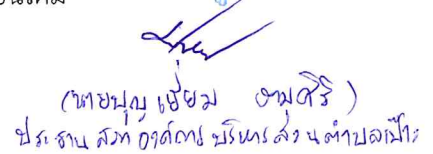 (นายบุญเยี่ยม งามศิริ)
ประธานสภาองค์การบริหารส่วนตำบลเป๊าะ